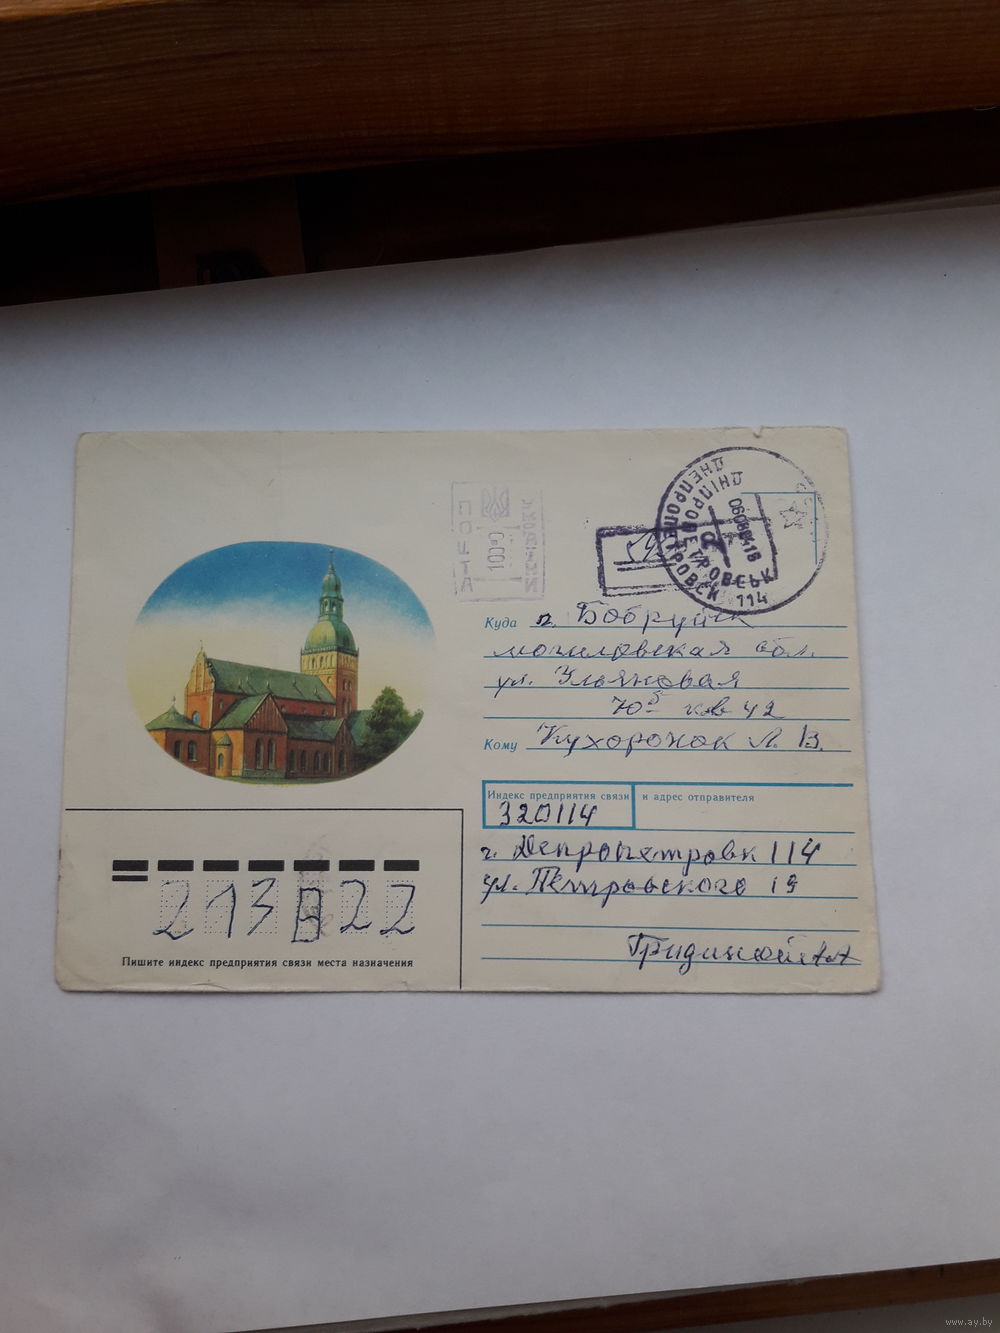 ПОШТА
1000
ДНЕПРОПЕТРОВСК
ДНІПРОПЕТРОВСЬК
114
Куда г. Бобруйск
могиловская обл.
ул. Ульяновая
кв 42
Кому Кухоронок Л. В.
Индекс предприятия связи и адрес отправителя
320114
г. Депропетровк 114
ул. Петровского 19
213822
Пишите индекс предприятия связи места назначения
www.ay.by